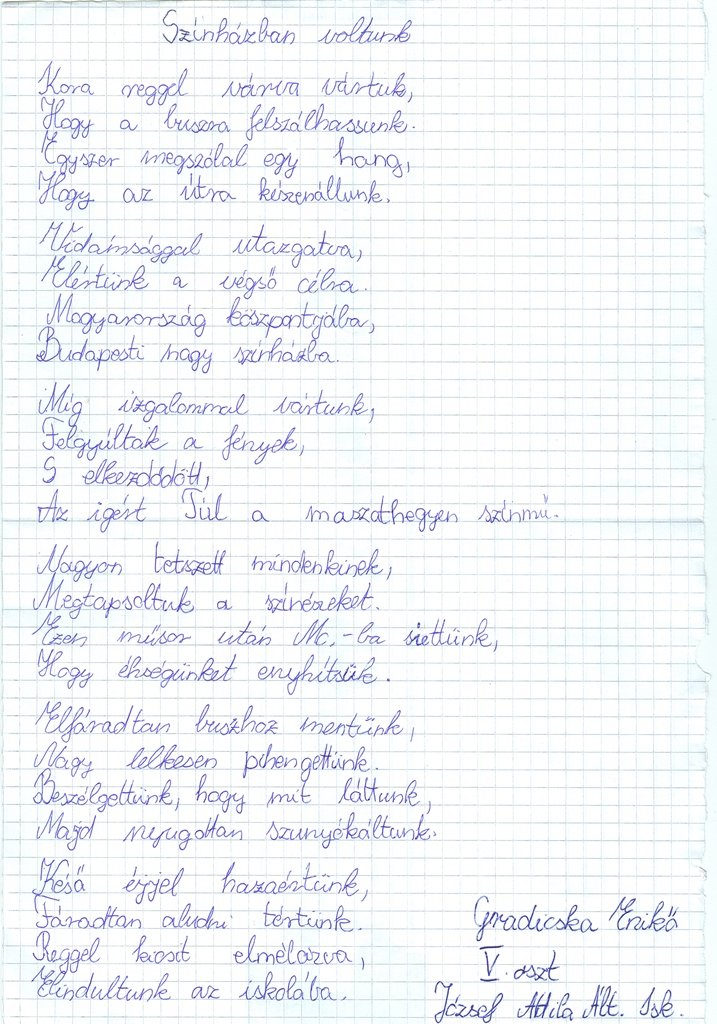 Színházban voltunk
Kora reggel várva vártuk,
Hogy a buszra felszálhassunk.
Egyszer megszólal egy hang,
Hogy az útra készenállunk.
Vidámsággal utazgatva,
Elértünk a végső célra.
Magyarország központjába,
Budapesti nagy színházba.
Míg izgalommal vártunk,
Felgyúltak a fények,
S elkezdődött,
Az igért Túl a maszathegyen színmű.
Nagyon tetszett mindenkinek,
Megtapsoltuk a színészeket.
Ezen műsor után Mc.-ba siettünk,
Hogy éhségünket enyhítsük.
Elfáradtan buszhoz mentünk,
Nagy lelkesen pihengettünk.
Beszélgettünk, hogy mit láttunk,
Majd nyugodtan szunyókáltunk.
Késő éjjel hazaértünk,
Fáradtan aludni tértünk.
Reggel kicsit elmélázva,
Elindultunk az iskolába.
Gradicska Enikő
V. oszt
József Attila Ált. Isk.